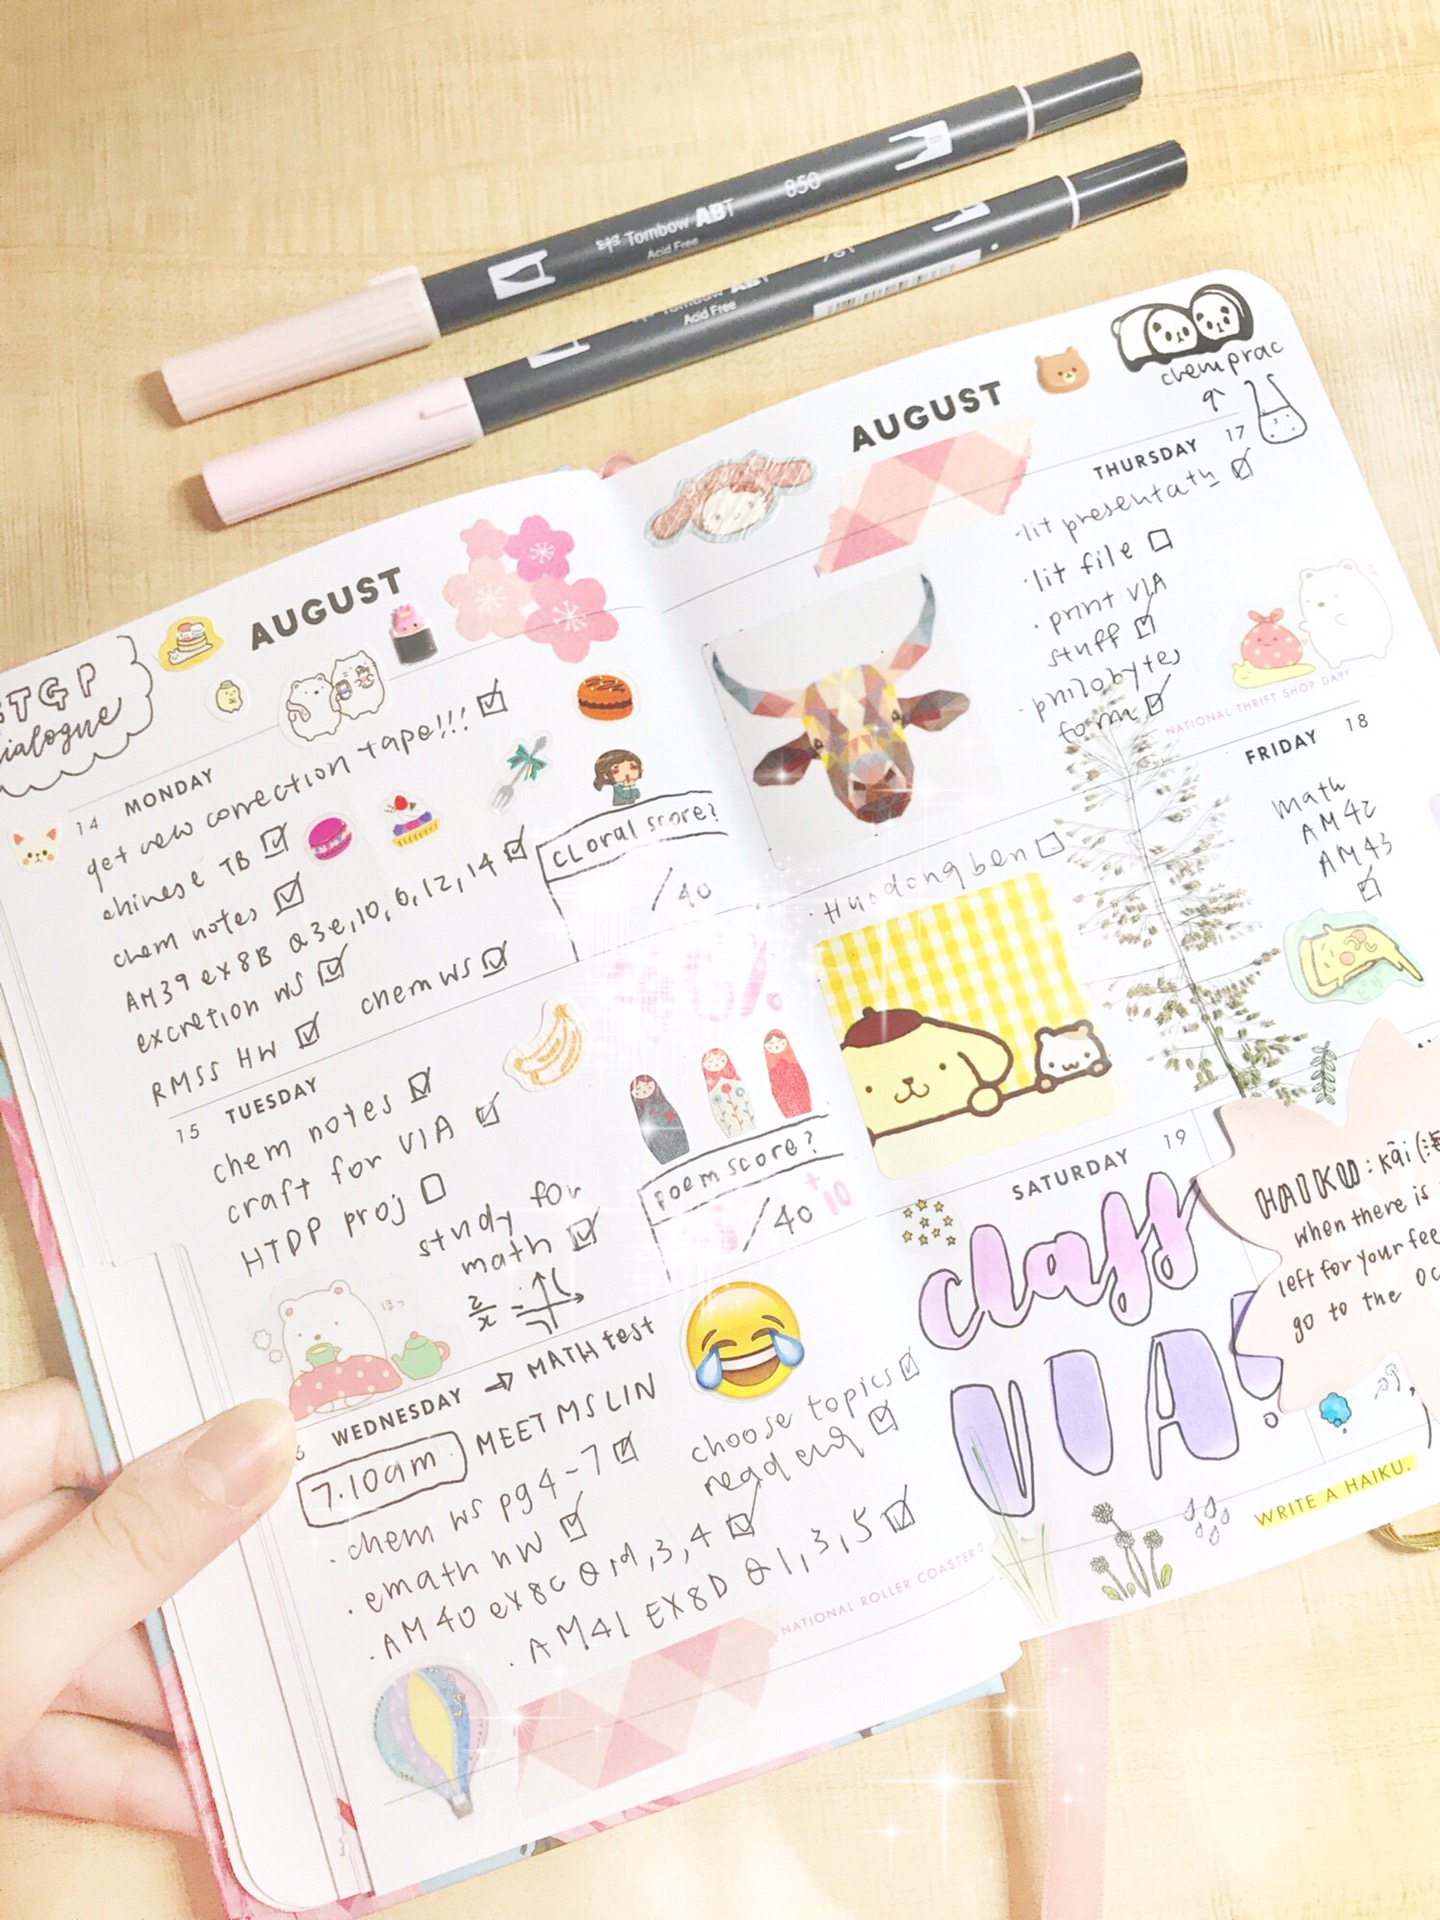 Tombow ABT
850
Acid Free
Acid Free
AUGUST
dialogue
14 MONDAY
get new correction tape!!!
chinese TB
chem notes
AM39 ex8B Q3e,10,6,12,14
excretion WS
chem WS
RMSS HW
cloral score?
/40
15 TUESDAY
chem notes
craft for VIA
HTDP proj
study for
math
2/x
poem score?
/40
+10
ほっ
WEDNESDAY → MATH test
7.10am MEET MS LIN
• chem ws pg 4-7
• emath HW
• AM40 ex8C Q1d,3,4
• AM41 EX8D Q1,3,5
choose topics
read eng
NATIONAL ROLLER COASTER D
AUGUST
chem prac
THURSDAY 17
• lit presentatn
• lit file
• print VIA
stuff
• philobytes
form
NATIONAL THRIFT SHOP DAY!
• Huodong ben
FRIDAY 18
math
AM42
AM43
SATURDAY 19
class
VIA!
HAIKU: Kāi (
When there is
left for your fee
go to the
WRITE A HAIKU.